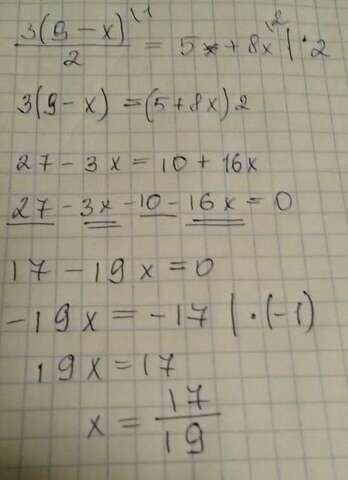 3(9 - x)\1 / 2 = 5 + 8x\2 | · 2
3(9 - x) = (5 + 8x)2
27 - 3x = 10 + 16x
27 - 3x - 10 - 16x = 0
17 - 19x = 0
-19x = -17 | · (-1)
19x = 17
x = 17/19